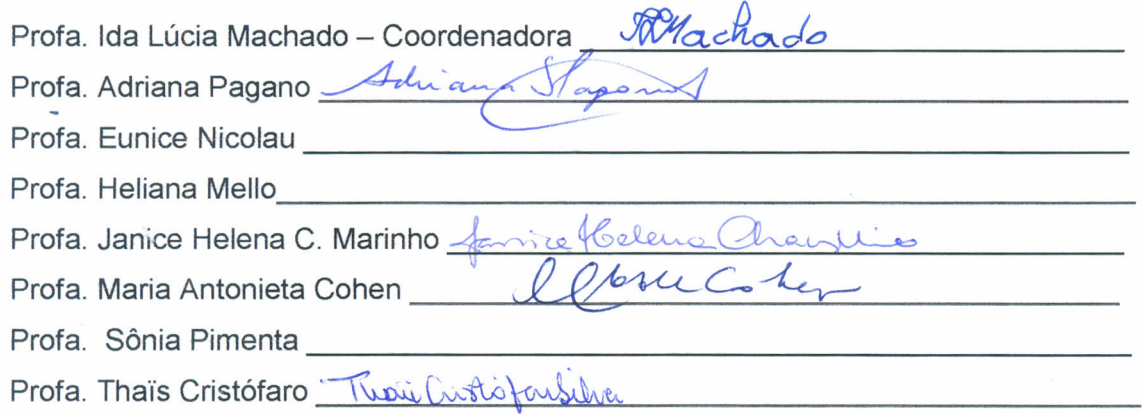 Profa. Ida Lúcia Machado – Coordenadora Machado
Profa. Adriana Pagano Adriana
Profa. Eunice Nicolau
Profa. Heliana Mello
Profa. Janice Helena C. Marinho Janice Helena
Profa. Maria Antonieta Cohen Cohen
Profa. Sônia Pimenta
Profa. Thaïs Cristófaro Thaïs Cristófaro Silva